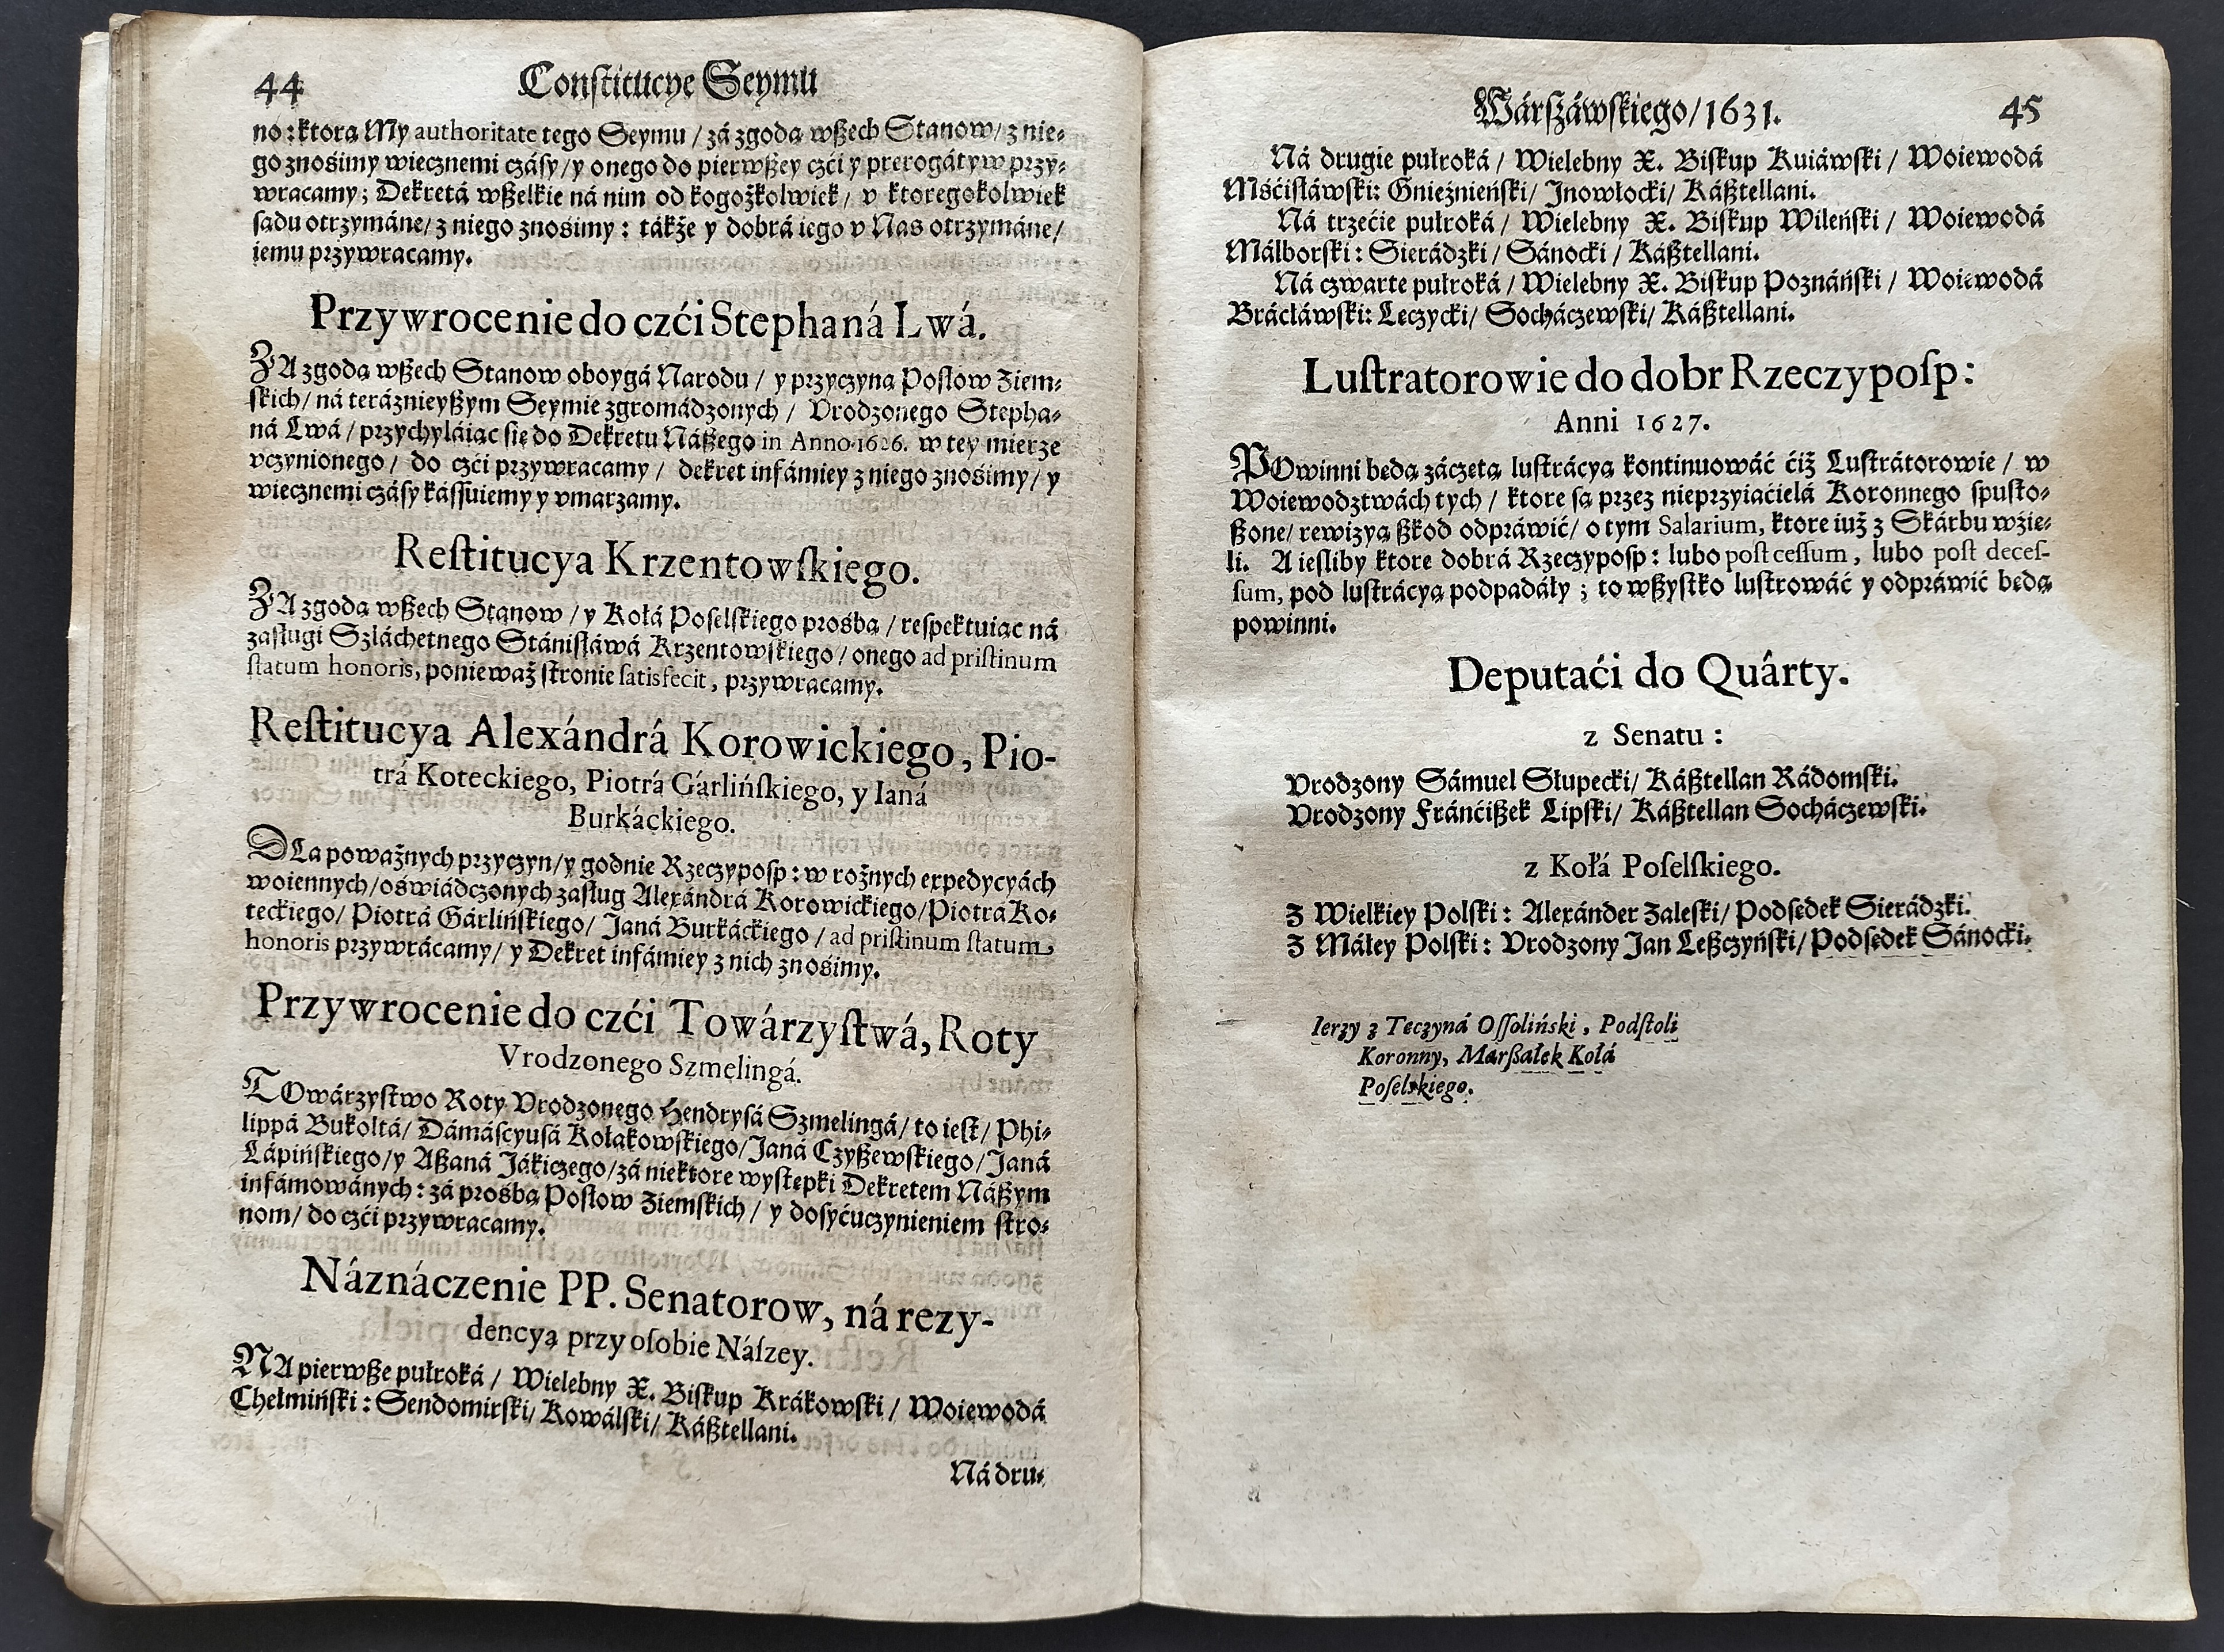 44 Constitucye Seymu
no: ktorą My authoritate tego Seymu / zá zgodą wßech Stanow / z nie⸗
go znośimy wiecznemi czásy / y onego do pierwßey czći y prerogátyw przy⸗
wracamy; Dekretá wßelkie ná nim od kogożkolwiek / v ktoregokolwiek
sądu otrzymáne / z niego znośimy: tákże y dobrá iego v Nas otrzymáne /
iemu przywracamy.
Przywrocenie do czći Stephaná Lwá.
ZA zgodą wßech Stanow oboygá Narodu / y przyczyną Posłow Ziem⸗
skich / ná teráznieyßym Seymie zgromádzonych / Vrodzonego Stepha⸗
ná Lwá / przychyláiąc się do Dekretu Náßego in Anno 1626. w tey mierze
vczynionego / do czći przywracamy / dekret infámiey z niego znośimy / y
wiecznemi czásy kássuiemy y vmarzamy.
Restitucya Krzentowskiego.
ZA zgodą wßech Stanow / y Kołá Poselskiego prośbą / respektuiąc ná
zasługi Szláchetnego Stánisłáwá Krzentowskiego / onego ad pristinum
statum honoris, ponieważ stronie satisfecit, przywracamy.
Restitucya Alexándrá Korowickiego, Pio-
trá Koteckiego, Piotrá Gárlińskiego, y Ianá
Burkáckiego.
DLa poważnych przyczyn / y godnie Rzeczyposp: w rożnych expedycyách
woiennych / oświádczonych zasług Alexándrá Korowickiego / Piotrá Ko⸗
teckiego / Piotrá Gárlińskiego / Janá Burkáckiego / ad pristinum statum
honoris przywrácamy / y Dekret infámiey z nich znośimy.
Przywrocenie do czći Towárzystwá, Roty
Vrodzonego Szmelingá.
TOwárzystwo Roty Vrodzonego Hendrysá Szmelingá / to iest / Phi⸗
lippá Bukoltá / Dámáscyusá Kołakowskiego / Janá Czyßewskiego / Janá
Lápińskiego / y Aßaná Jákiczego / zá niektore występki Dekretem Náßym
infámowánych: zá prośbą Posłow Ziemskich / y dosyćuczynieniem stro⸗
nom / do czći przywracamy.
Náznáczenie PP. Senatorow, ná rezy-
dencyą przy osobie Nászey.
NA pierwße pułroká / Wielebny X. Biskup Krákowski / Woiewodá
Chełmiński: Sendomirski / Kowálski / Káßtellani.
Ná dru⸗
Wárszáwskiego / 1631. 45
Ná drugie pułroká / Wielebny X. Biskup Kuiáwski / Woiewodá
Mśćisłáwski: Gnieżnieński / Jnowłocki / Káßtellani.
Ná trzećie pułroká / Wielebny X. Biskup Wileński / Woiewodá
Málborski: Sierádzki / Sánocki / Káßtellani.
Ná czwarte pułroká / Wielebny X. Biskup Poznáński / Woiewodá
Brácłáwski: Lęczycki / Socháczewski / Káßtellani.
Lustratorowie do dobr Rzeczyposp:
Anni 1627.
POwinni będą záczętą lustrácyą kontinuowáć ćiż Lustrátorowie / w
Woiewodztwách tych / ktore są przez nieprzyiaćielá Koronnego spusto⸗
ßone / rewizyą ßkod odpráwić / o tym Salarium, ktore iuż z Skárbu wźię⸗
li. A iesliby ktore dobrá Rzeczyposp: lubo post cessum, lubo post deces-
sum, pod lustrácyą podpadáły; to wßystko lustrowáć y odpráwić będą
powinni.
Deputaći do Quârty.
z Senatu:
Vrodzony Sámuel Słupecki / Káßtellan Rádomski.
Vrodzony Fránćißek Lipski / Káßtellan Socháczewski.
z Kołá Poselskiego.
Z Wielkiey Polski: Alexánder Zaleski / Podsędek Sierádzki.
Z Máłey Polski: Vrodzony Jan Leßczyński / Podsędek Sánocki.
Ierzy z Teczyná Ossoliński, Podstoli
Koronny, Marßałek Kołá
Poselskiego.